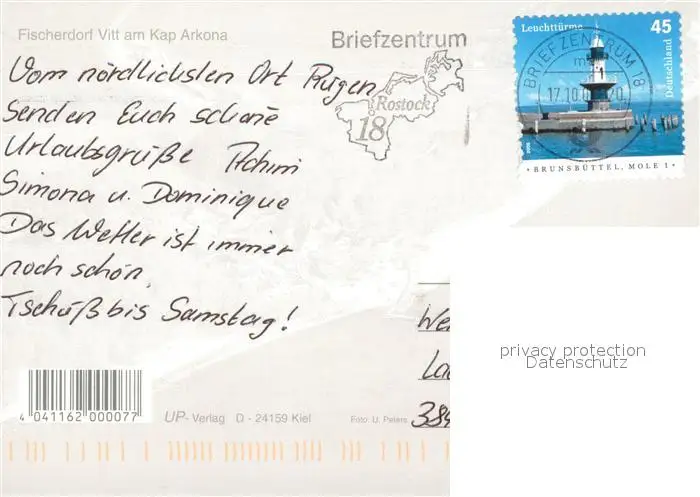 Fischerdorf Vitt am Kap Arkona
Briefzentrum
Rostock
18
Leuchttürme
45
Deutschland
BRIEFZENTRUM 18
17.10.
BRUNSBÜTTEL, MOLE 1
Vom nördlichsten Ort Rügen
Senden Euch schöne
Urlaubsgrüße Achim
Simona u. Dominique
Das Wetter ist immer
noch schön.
Tschüß bis Samstag!
privacy protection
Datenschutz
4 041162 000077
UP-Verlag D - 24159 Kiel
Foto: U. Peters
384